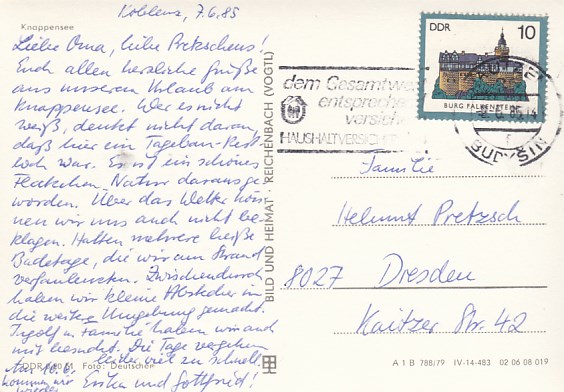 Koblenz, 7.6.85
Knappensee
Liebe Oma, liebe Pretzschens!
Euch allen herzliche Grüße
aus unserem Urlaub am
Knappensee. Wer es nicht
weiß, denkt nicht daran,
daß hier ein Tagebau-Rest-
loch war. Es ist ein schönes
Fleckchen Natur daraus ge-
worden. Über das Wetter kön-
nen wir uns auch nicht be-
klagen. Hatten mehrere heiße
Badetage, die wir am Strand
verfaulenzten. Zwischendurch
haben wir kleine Abstecher in
die weitere Umgebung gemacht.
Ingolf u. Familie haben wir auch
mit besucht. Die Tage vergehen
leider viel zu schnell
Am 10.
kommen wir wieder
Erika und Gottfried!
Foto: Deutscher
BILD UND HEIMAT · REICHENBACH (VOGTL)
DDR 10
BURG FALKENSTEIN
dem Gesamtwe
entspreche
versich
HAUSHALTVERSICHER
Familie
Helmut Pretzsch
8027 Dresden
Kaitzer Str. 42
A 1 B 788/79 IV-14-483 02 06 08 019